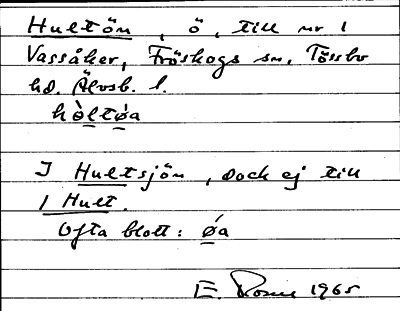 Hultön, ö, till nr 1
Vassåker, Fröskogs sn, Tössbo
hd. Älvsb. l.
hòltøa
I Hultsjön, dock ej till
1 Hult.
Ofta blott: ǿa
E. 1965